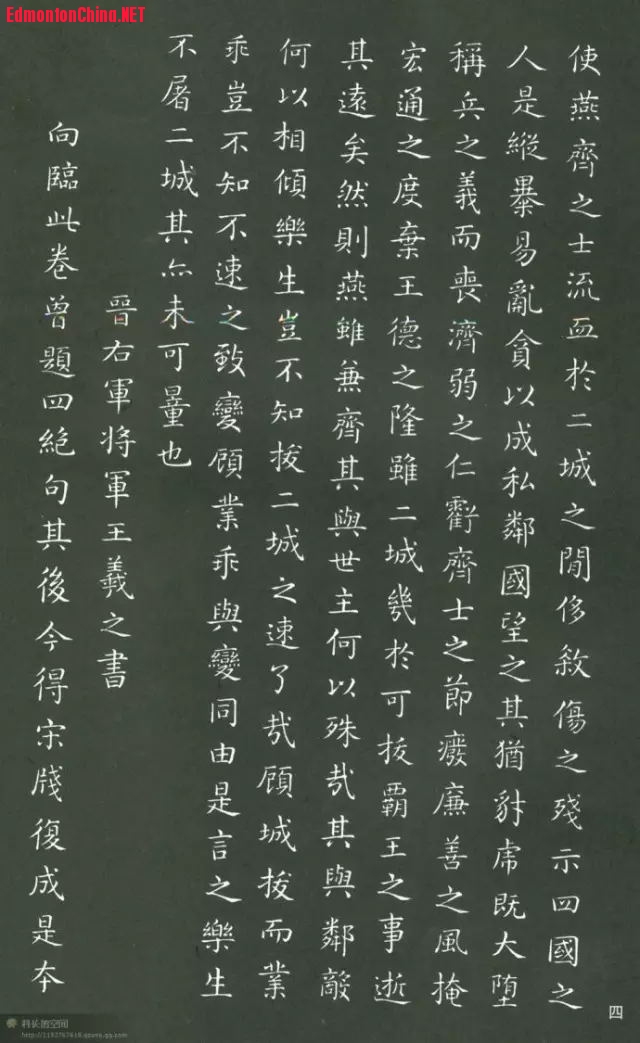 EdmontonChina.NET
使燕齊之士流血於二城之閒侈敘傷之殘示四國之
人是縱暴易亂貪以成私鄰國望之其猶豺虎既大墮
稱兵之義而喪濟弱之仁虧齊士之節廢廉善之風掩
宏通之度棄王德之隆雖二城幾於可拔霸王之事逝
其遠矣然則燕雖兼齊其與世主何以殊哉其與鄰敵
何以相傾樂生豈不知拔二城之速了哉顧城拔而業
乖豈不知不速之致變顧業乖與變同由是言之樂生
不屠二城其亦未可量也
晉右軍將軍王羲之書
向臨此卷曾題四絕句其後今得宋牋復成是本
四
科长的空间